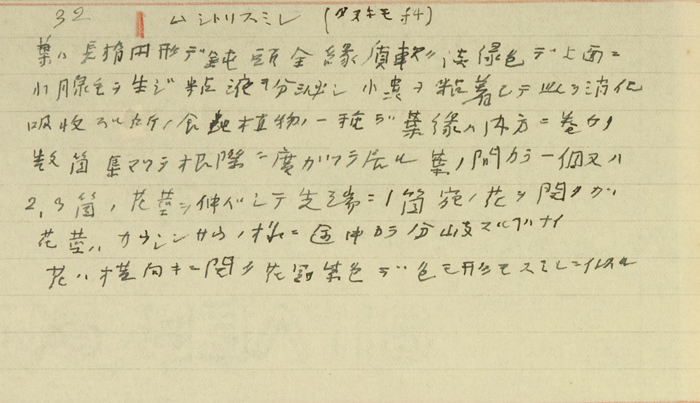 32 ムシトリスミレ (タヌキモ科)
葉ハ長楕円形デ鈍頭全縁質軟ク淡緑色デ上面ニ
小腺毛ヲ生ジ粘液ヲ分泌シ小虫ヲ粘着シテ此ヲ消化
吸收スル所ノ食虫植物ノ一種デ葉縁ハ内方ニ巻ク
数箇集マツテ根際ニ広ガツテ居ル葉ノ間カラ一個又ハ
2,3箇ノ花茎ヲ伸バシテ先端ニ1箇宛ノ花ヲ開クガ
花茎ハ ノ様ニ途中カラ分岐スル ナイ
花ハ横向キニ開ク花冠紫色デ色モ形モスミレニ似ル